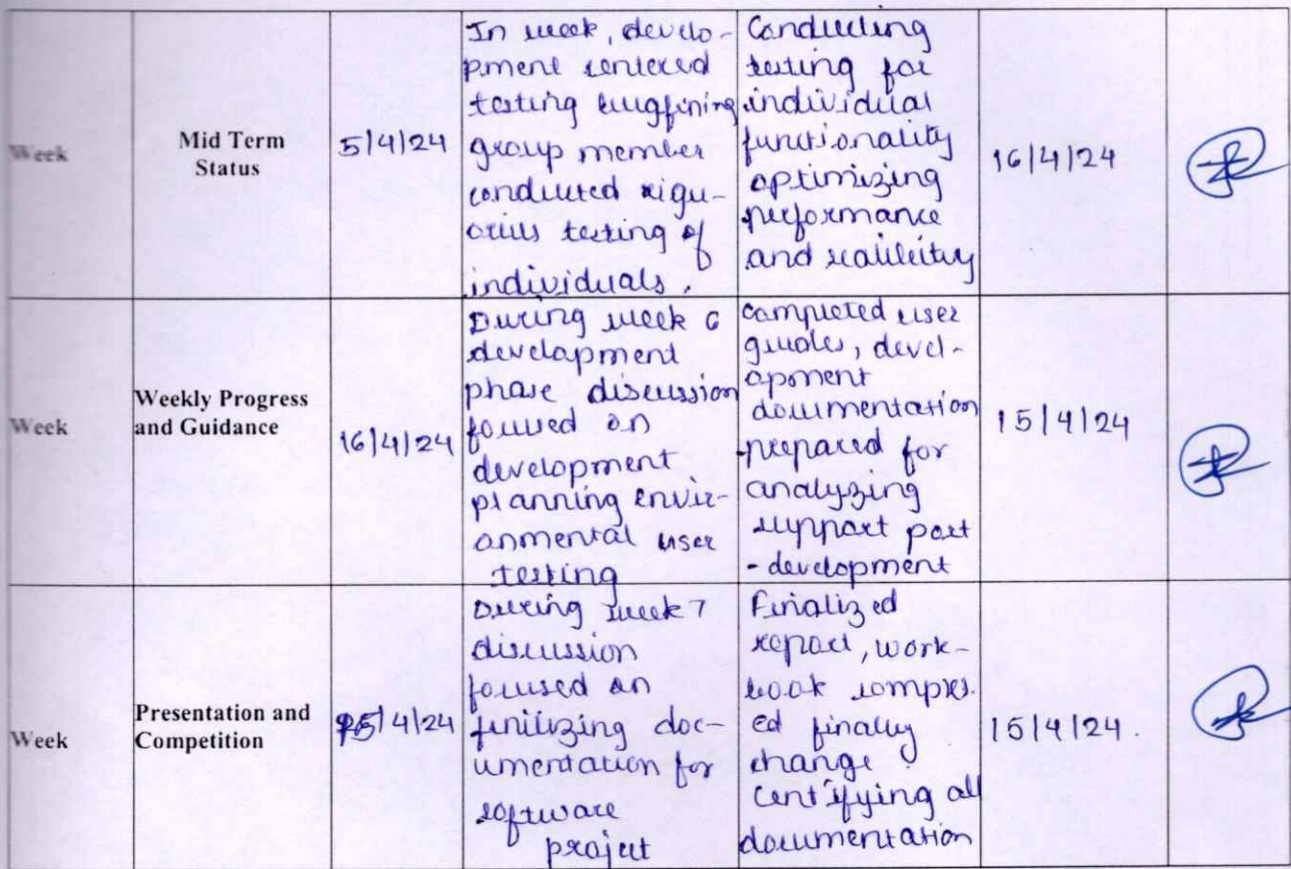 Week
Mid Term
Status
5/4/24
In week, develo-
pment centered
testing bugfining
group member
conducted rigu-
orius testing of
individuals.
Conducting
testing for
individual
functionality
optimizing
performance
and
16/4/24
Week
Weekly Progress
and Guidance
16/4/24
During week 6
development
phase discussion
focused on
development
planning envir-
onmental user
testing
completed user
guides, devel-
opment
documentation
prepared for
analyzing
support post
- development
15/4/24
Week
Presentation and
Competition
15/4/24
During week 7
discussion
focused on
finilizing doc-
umentation for
software
project
Finalized
report, work-
book
ed finally
change
Centifying all
documentation
15/4/24.